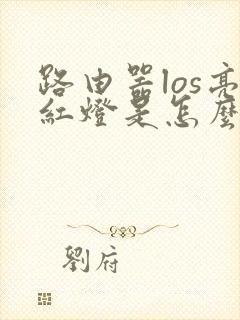 路由器los亮
紅燈是怎麼
劉府